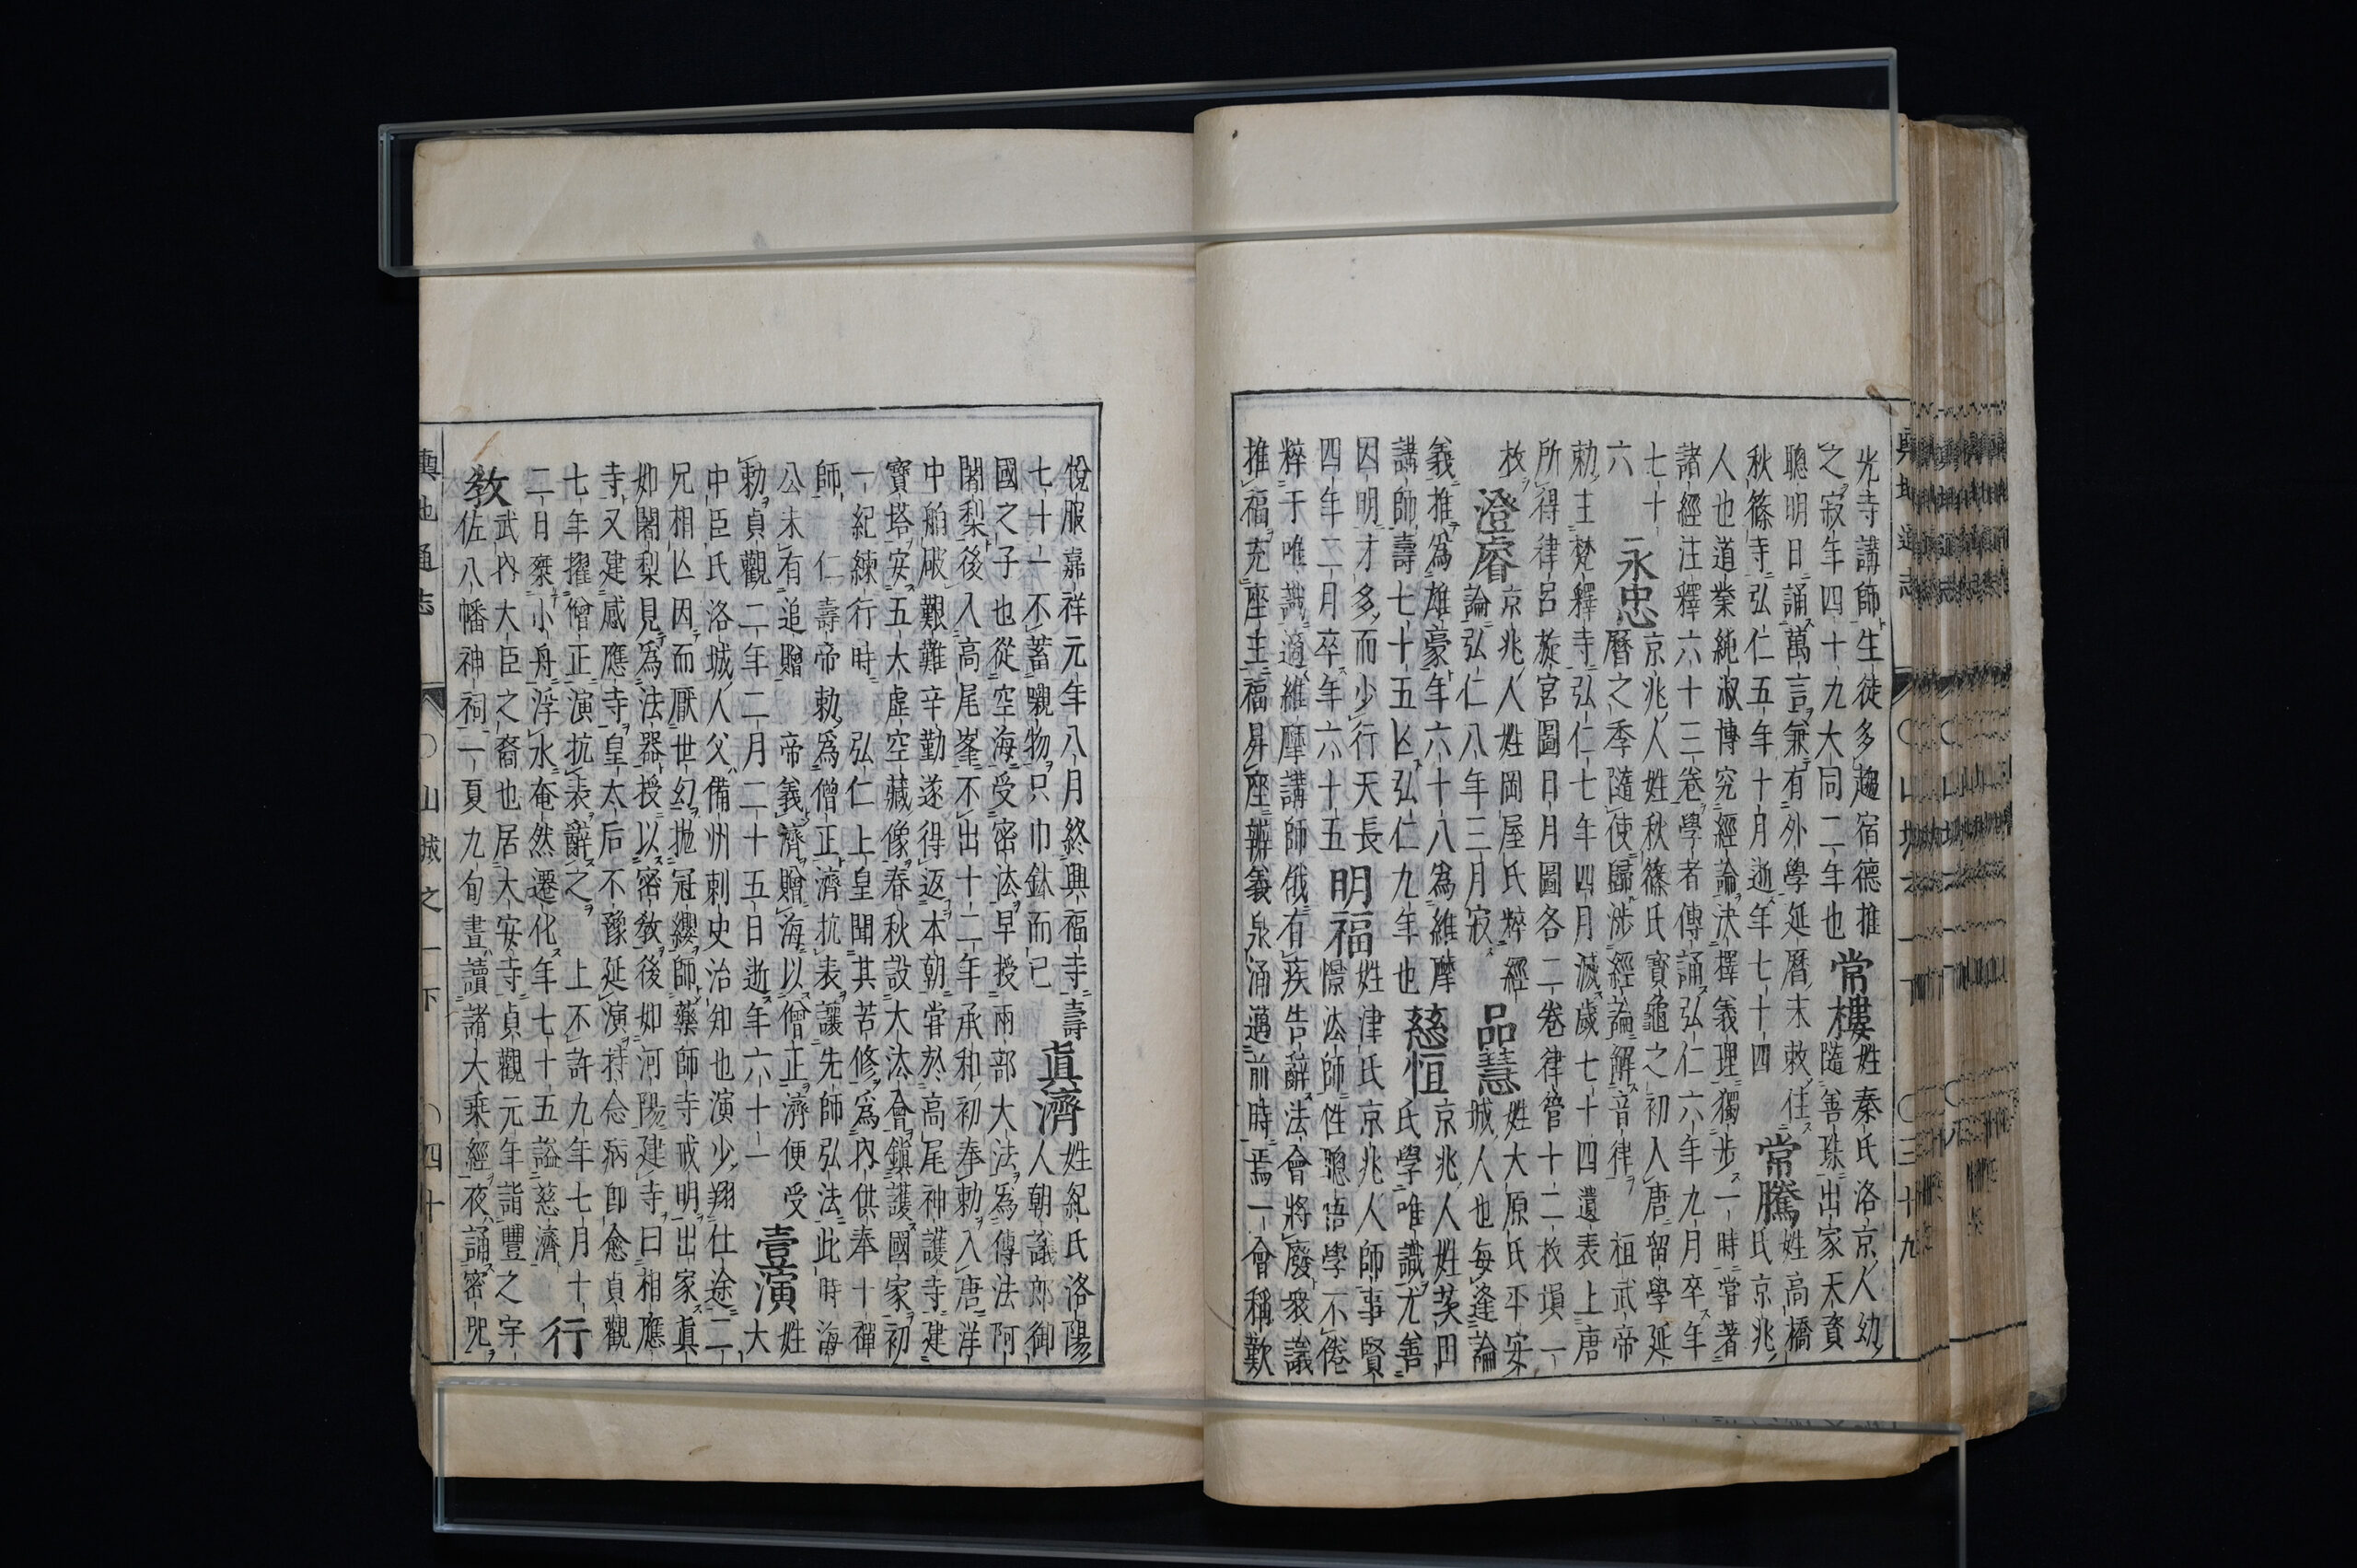 輿地通志 ○山城之一下 ○三十九
光寺講師生徒多趨宿德推 常樓 姓秦氏洛京人幼
之寂年四十九大同二年也 隨善珠出家天資
聰明日誦萬言兼有外學延曆末敕住 常騰 姓高橋
秋篠寺弘仁五年十月逝年七十四 氏京兆
人也道業純淑博究經論決擇義理獨步一時嘗著
諸經注釋六十三卷學者傳誦弘仁六年九月卒年
七十 永忠 京兆人姓秋篠氏寶龜之初入唐留學延
六 曆之季隨使歸涉經論解音律 桓武帝
勅主梵釋寺弘仁七年四月滅歲七十四遺表上唐
所得律呂旋宮圖日月圖各二卷律管十二枚塤一
枚 澄睿 京兆人姓岡屋氏粹經 品慧 姓大原氏平安
論弘仁八年三月寂 城人也每逢論
義推爲雄豪年六十八爲維摩 慈恒 京兆人姓茨田
講師壽七十五亾弘仁九年也 氏學唯識尤善
因明才多而少行天長 明福 姓津氏京兆人師事賢
四年二月卒年六十五 憬法師性聰悟學不倦
粹于唯識適維摩講師俄有疾告辭法會將廢衆議
推福充座主福昇座辨義泉涌邁前時焉一會稱歎
悅服嘉祥元年八月終興福寺壽 眞濟 姓紀氏洛陽
七十一不蓄嚫物只巾鉢而已 人朝議郎御
國之子也從空海受密法早授兩部大法爲傳法阿
闍梨後入高尾峯不出十二年承和初奉勅入唐洋
中舶破艱難辛勤遂得返本朝嘗於高尾神護寺建
寶塔安五大虛空藏像春秋設大法會鎭護國家初
一紀練行時 弘仁上皇聞其苦修爲內供奉十禪
師 仁壽帝勅爲僧正濟抗表讓先師弘法此時海
公未有追贈 帝義濟贈海以僧正濟便受 壹演 姓
勅貞觀二年二月二十五日逝年六十一 大
中臣氏洛城人父備州刺史治知也演少翔仕途二
兄相亾因而厭世幻抛冠纓師藥師寺戒明出家眞
如闍梨見爲法器授以密敎後如河陽建寺曰相應
寺又建感應寺皇太后不豫延演持念病卽愈貞觀
七年擢僧正演抗表辭之 上不許九年七月十
二日棄小舟浮水奄然遷化年七十五謚慈濟 行
敎 武內大臣之裔也居大安寺貞觀元年詣豐之宇
佐八幡神祠一夏九旬晝讀諸大乘經夜誦密咒
輿地通志 ○山城之一下 ○四十